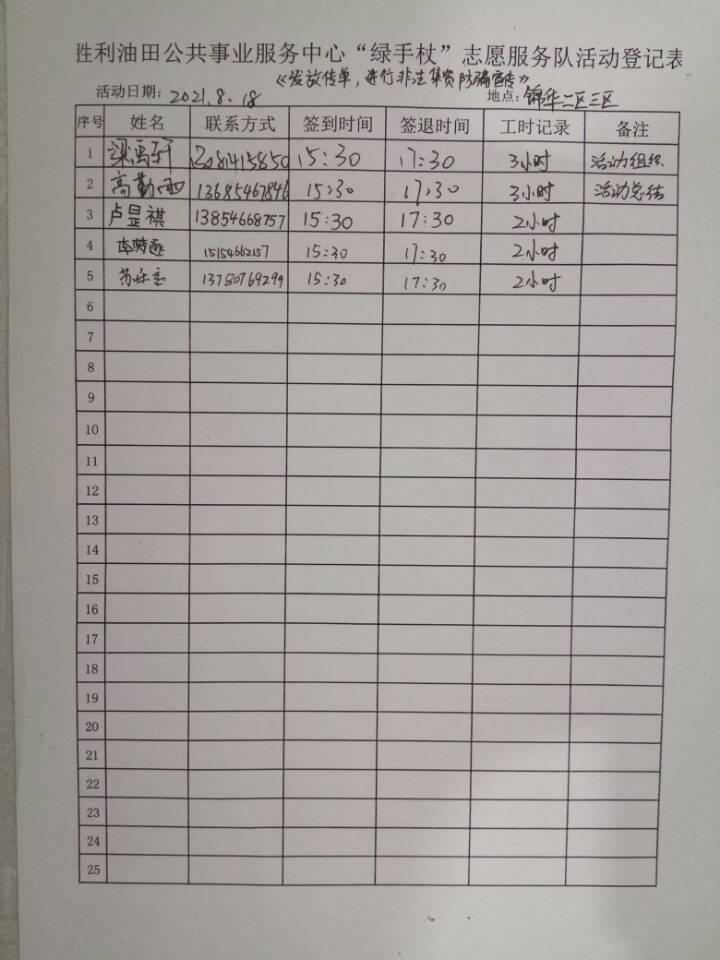 胜利油田公共事业服务中心“绿手杖”志愿服务队活动登记表
《发放传单,进行非法集资防骗宣传》
活动日期: 2021.8.18 地点: 锦华二区三区
序号 姓名 联系方式 签到时间 签退时间 工时记录 备注
1 梁禹轩 15:30 17:30 3小时 活动组织
2 高勤雨 13685467846 15:30 17:30 3小时 活动总结
3 卢昱祺 13854668757 15:30 17:30 2小时
4 15154662157 15:30 17:30 2小时
5 13780769299 15:30 17:30 2小时
6
7
8
9
10
11
12
13
14
15
16
17
18
19
20
21
22
23
24
25